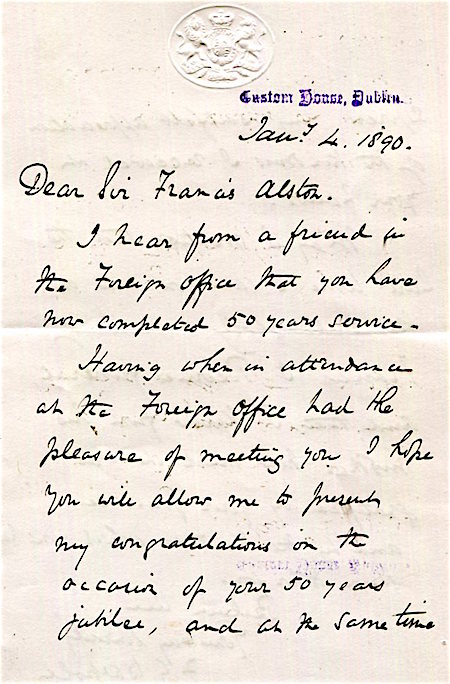 Custom House, Dublin.
Jany 4. 1890.
Dear Sir Francis Alston.
I hear from a friend in
the Foreign Office that you have
now completed 50 years service.
Having when in attendance
at the Foreign Office had the
pleasure of meeting you I hope
you will allow me to present
my congratulations on the
occasion of your 50 years
jubilee, and at the same time